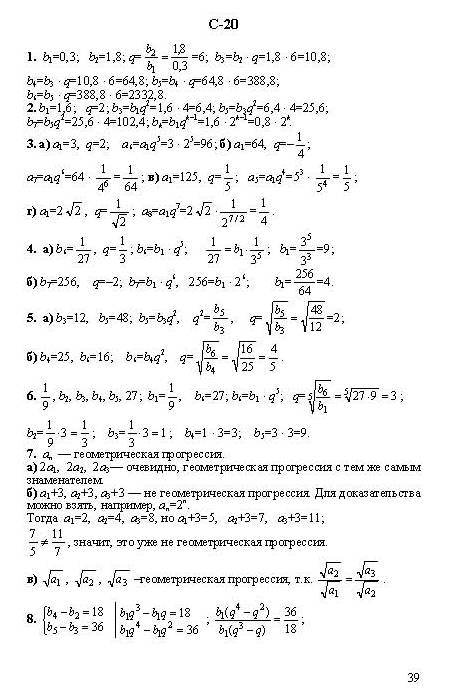 С-20
1. b₁=0,3; b₂=1,8; q= b₂/b₁ = 1,8/0,3 =6; b₃=b₂ · q=1,8 · 6=10,8;
b₄=b₃ · q=10,8 · 6=64,8; b₅=b₄ · q=64,8 · 6=388,8;
b₆=b₅ · q=388,8 · 6=2332,8.
2. b₁=1,6; q=2; b₃=b₁q²=1,6 · 4=6,4; b₅=b₃q²=6,4 · 4=25,6;
b₇=b₅q²=25,6 · 4=102,4; bₖ=b₁qᵏ⁻¹=1,6 · 2ᵏ⁻¹=0,8 · 2ᵏ.
3. а) a₁=3, q=2; a₆=a₁q⁵=3 · 2⁵=96; б) a₁=64, q=− 1/4;
a₇=a₁q⁶=64 · 1/4⁶ = 1/64; в) a₁=125, q= 1/5; a₅=a₁q⁴=5³ · 1/5⁴ = 1/5;
г) a₁=2√2, q= 1/√2; a₈=a₁q⁷=2√2 · 1/2^(7/2) = 1/4.
4. а) b₆= 1/27, q= 1/3; b₆=b₁ · q⁵; 1/27 =b₁ · 1/3⁵; b₁= 3⁵/3³ =9;
б) b₇=256, q=−2; b₇=b₁ · q⁶, 256=b₁ · 2⁶; b₁= 256/64 =4.
5. а) b₃=12, b₅=48; b₅=b₃q², q²= b₅/b₃, q= √(b₅/b₃) = √(48/12) =2;
б) b₄=25, b₆=16; b₆=b₄q², q= √(b₆/b₄) = √(16/25) = 4/5.
6. 1/9, b₂, b₃, b₄, b₅, 27; b₁= 1/9, b₆=27; b₆=b₁ · q⁵; q= ⁵√(b₆/b₁) = ⁵√(27·9) = 3;
b₂= 1/9 · 3 = 1/3; b₃= 1/3 · 3 = 1; b₄=1 · 3=3; b₅=3 · 3=9.
7. aₙ — геометрическая прогрессия.
а) 2a₁, 2a₂, 2a₃— очевидно, геометрическая прогрессия с тем же самым
знаменателем.
б) a₁+3, a₂+3, a₃+3 — не геометрическая прогрессия. Для доказательства
можно взять, например, aₙ=2ⁿ.
Тогда a₁=2, a₂=4, a₃=8, но a₁+3=5, a₂+3=7, a₃+3=11;
7/5 ≠ 11/7, значит, это уже не геометрическая прогрессия.
в) √a₁, √a₂, √a₃ –геометрическая прогрессия, т.к. √a₂/√a₁ = √a₃/√a₂.
8. {b₄ − b₂ = 18 | b₁q³ − b₁q = 18; b₁(q⁴ − q²)/b₁(q³ − q) = 36/18;
{b₅ − b₃ = 36 | b₁q⁴ − b₁q² = 36
39